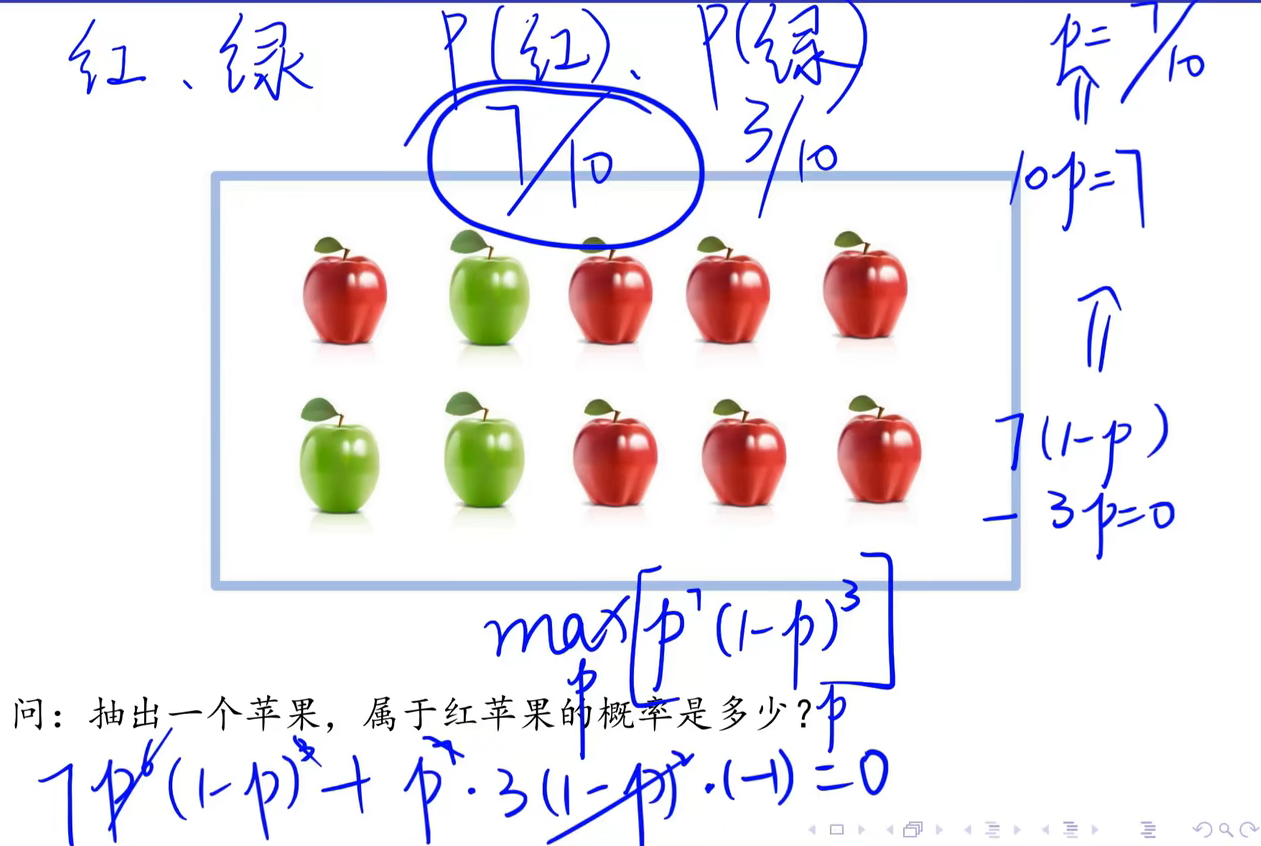 红、绿 P(红)、P(绿) p=7/10
7/10 3/10
10p=7
⇑
7(1-p)
-3p=0
max[p⁷(1-p)³]
p
问：抽出一个苹果，属于红苹果的概率是多少？p
7p⁶(1-p)³+p⁷·3(1-p)²·(-1)=0